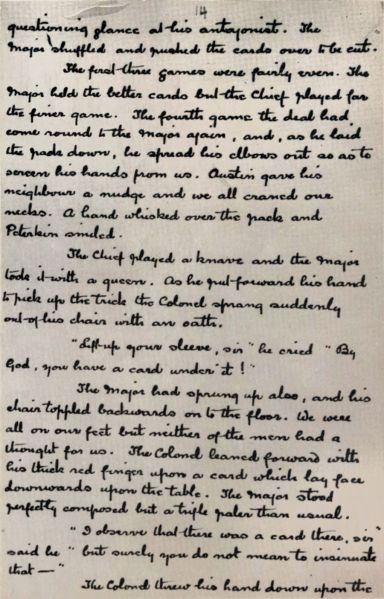 14
questioning glance at his antagonist. The
Major shuffled and pushed the cards over to be cut.
The first three games were fairly even. The
Major held the better cards but the Chief played far
the finer game. The fourth game the deal had
come round to the Major again, and, as he laid
the pack down, he spread his elbows out so as to
screen his hands from us. Austin gave his
neighbour a nudge and we all craned our
necks. A hand whisked over the pack and
Peterkin smiled.
The Chief played a knave and the Major
took it with a queen. As he put forward his hand
to pick up the trick the Colonel sprang suddenly
out of his chair with an oath.
"Lift up your sleeve, sir" he cried "By
God, you have a card under it!"
The Major had sprung up also, and his
chair toppled backwards on to the floor. We were
all on our feet but neither of the men had a
thought for us. The Colonel leaned forward with
his thick red finger upon a card which lay face
downwards upon the table. The Major stood
perfectly composed but a trifle paler than usual.
"I observe that there was a card there, sir"
said he "but surely you do not mean to insinuate
that —"
The Colonel threw his hand down upon the